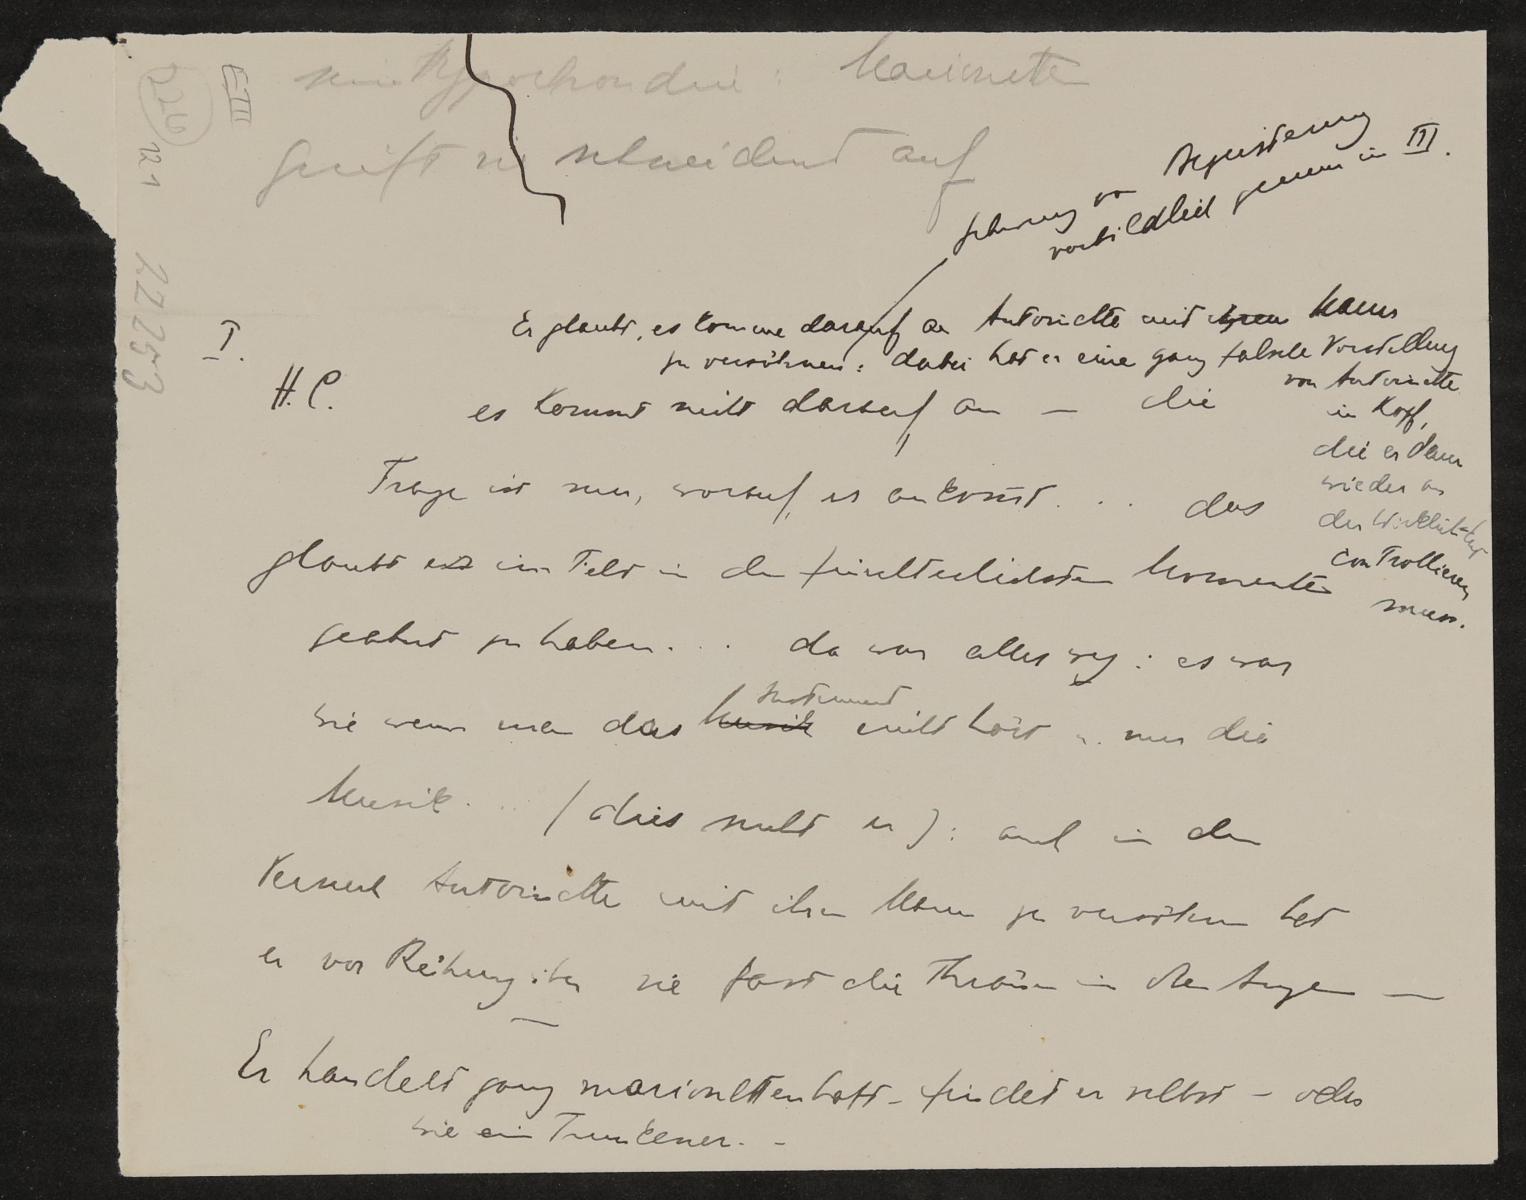 seine Hypochondrie: Marionette
greift sie schneidend auf
E III
226
121
22253
vorbildlich genau in III.
I.
Er glaubt, es komme darauf an Antoinette mit ihrem Mann
zu versöhnen: dabei hat er eine ganz falsche Vorstellung
von Antoinette
im Kopf,
die er dann
wieder an
der Wirklichkeit
controllieren
muss.
H. C.
es kommt nicht darauf an — die
Frage ist nur, worauf es ankomt... das
glaubt er im Feld in den fürchterlichsten Momenten
geahnt zu haben... da war alles weg: es war
wie wenn man das Musik Instrument nicht hört u. nur die
Musik... (dies sucht er): auch in dem
Versuch Antoinette mit ihrem Mann zu versöhnen hat
er vor Rührung über sie fast die Thränen in den Augen —
Er handelt ganz marionettenhaft - findet er selbst - oder
wie ein Trunkener. -